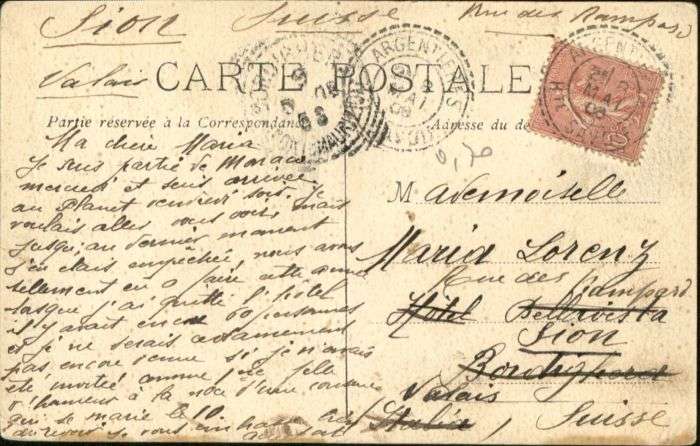 Sion Suisse Rue des Rampars
Valais
CARTE POSTALE
Partie réservée à la Correspondance
Adresse du
ARGENTIERES
MAI
08
SAVOIE
0,20
Ma chère Maria
Je suis partie de Monaco
mercredi et suis arrivée
au Planet vendredi soir. Je
voulais aller vous voir mais
jusqu'au dernier moment
j'en étais empechée, nous avons
tellement en a faire cette année
lorsque j'ai quitté l'hôtel
il y avait encore 60 personnes
et je ne serais certainement
pas encore venue si je n'avais
été invitée comme fille
d'honneur à la noce d'une cousine
qui se marie le 10.
au revoir je vous
Mademoiselle
Maria Lorenz
Rue des Rampars
Hôtel Bellavista
Sion
Bordighera
Valais
Italie, Suisse